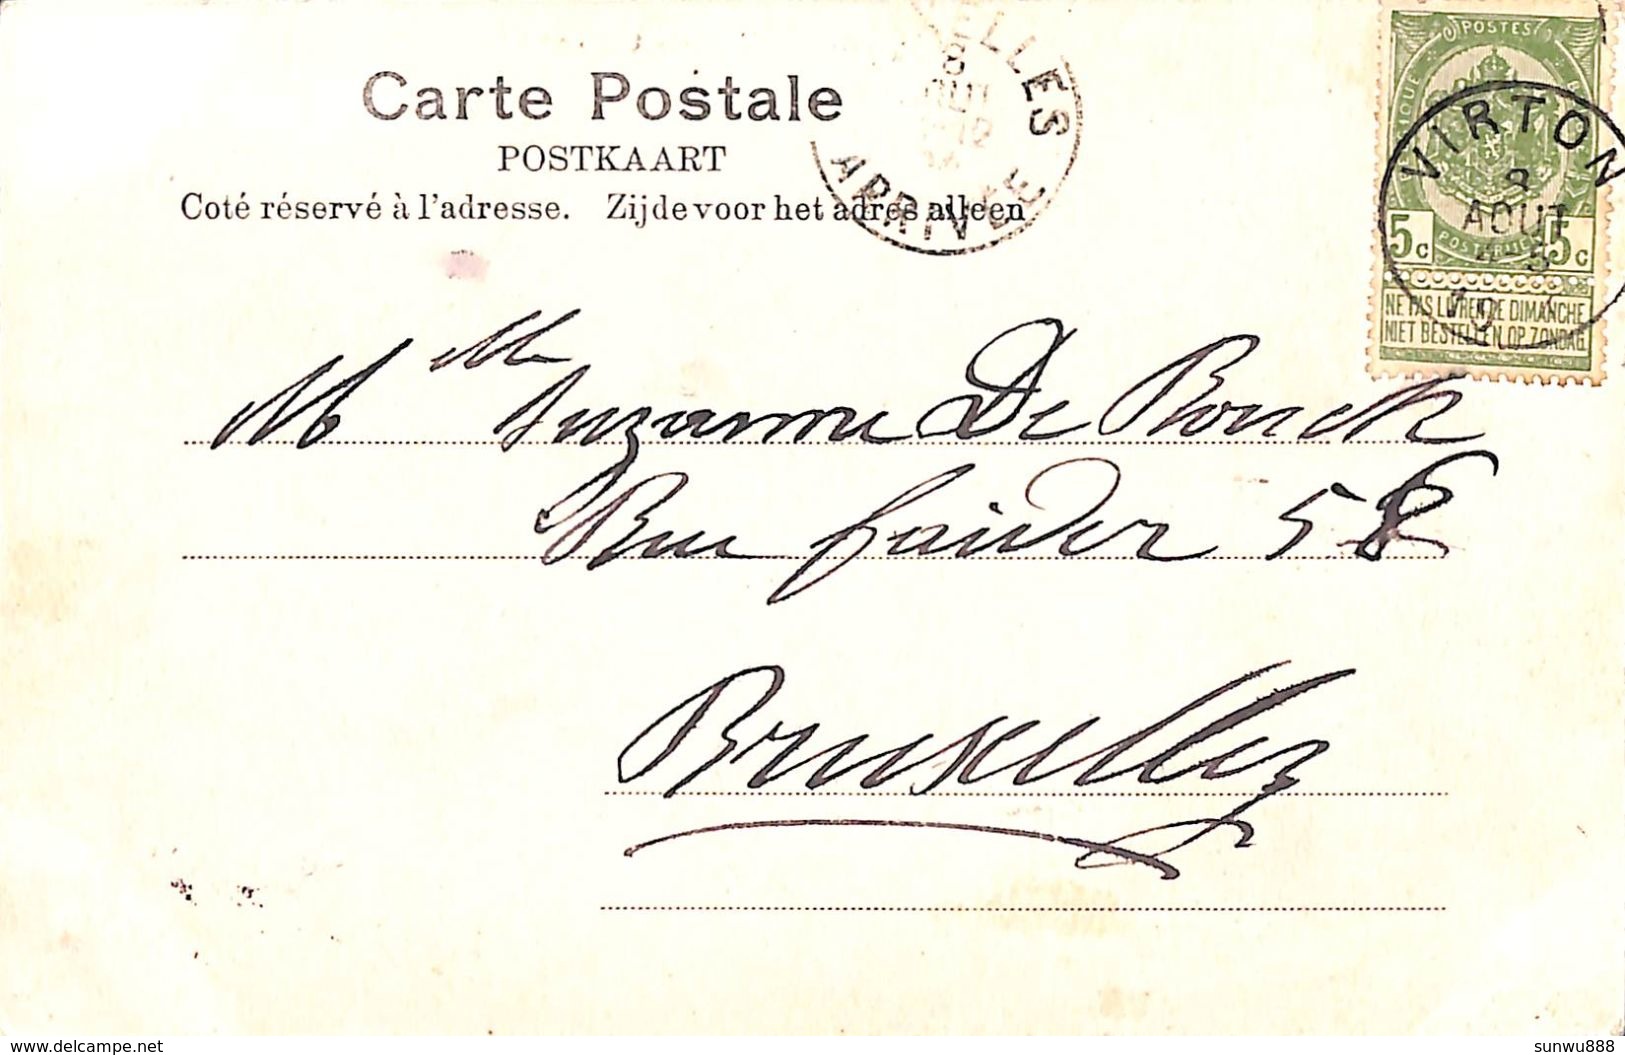 Carte Postale
POSTKAART
Coté réservé à l'adresse. Zijde voor het adres alleen
ELLES
ARRIVÉE
POSTES
5c POSTERIJEN 5c
NE PAS LIVRER LE DIMANCHE
NIET BESTELLEN OP ZONDAG
VIRTON
8
AOUT
Mlle Suzanne De Bonck
Rue Faider 58
Bruxelles
delcampe.net
sunwu888